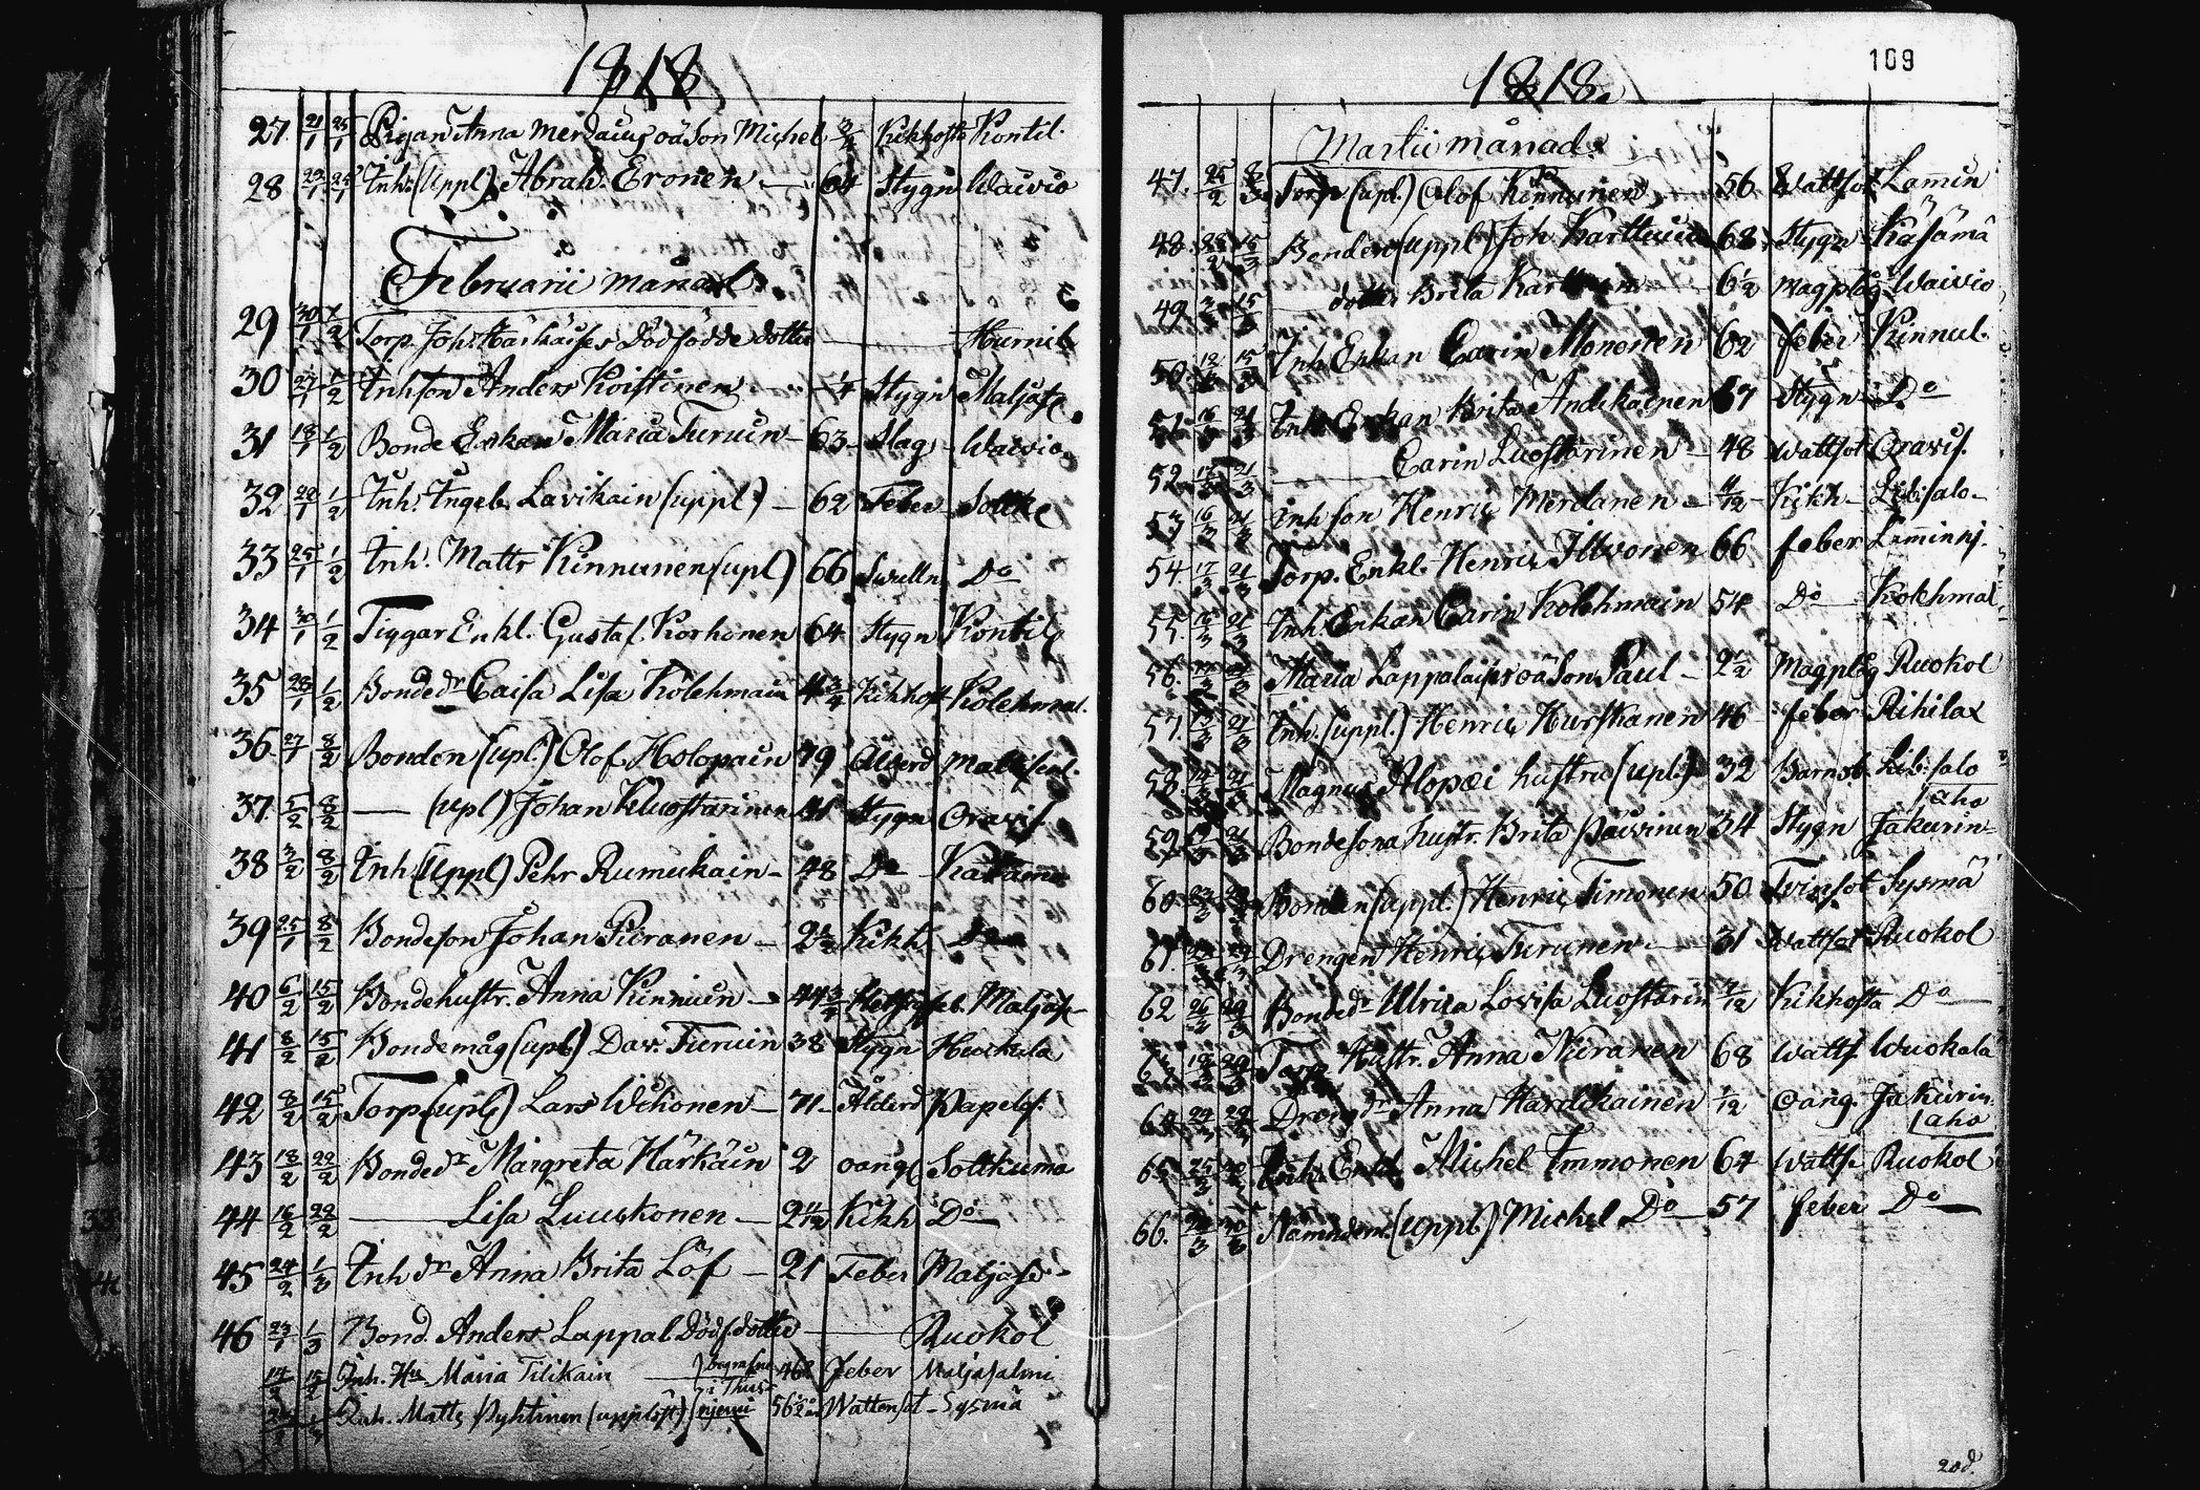 1818
27. 21/1 25/1 Pigan Anna Merdaius oä Son Michel 3/4 Kikhosta Kontil.
28 22/1 25/1 Inh. (Uppl.) Abrah. Eronen 64 Stygn Waivio
Februarii månad.
29 30/1 1/2 Torp. Joh. Härkäises Dödfödde dotter Hurnil
30 27/1 1/2 Inhson Anders Koistinen 1/4 Stygn Maljas
31 18/1 1/2 Bonde Enkan Maria Turuin 63 Slag Waivio
32 28/1 1/2 Inh. Ingeb. Lavikain (uppl) 62 Feber Sottke
33 25/1 1/2 Inh. Matts Kinnunen (upl) 66 Swulln Do
34 30/1 1/2 Tiggar Enkl. Gustaf Korhonen 64 Stygn Kontil
35 28/1 1/2 Bondedr Caisa Lisa Kolehmain 4 3/4 Kikhost Kolehmal.
36. 27/1 8/2 Bonden (upl.) Olof Holopain 79 Ålderd
37. 5/2 8/2 — (upl) Johan Kluostarinen 41 Stygn Oravis.
38 3/2 8/2 Inh (Uppl) Pehr Rumukain 48 Do
39 25/1 8/2 Bondeson Johan Piiranen 2 1/2 Kikh Do
40 6/2 15/2 Bondehustr. Anna Kinnuin 44 3/4 Maljas
41 8/2 15/2 Bondemåg (upl) Dav. Turuin 38 Stygn Heuckula
42 8/2 15/2 Torp (upl) Lars Wihonen 71 Ålderd Papels.
43 18/2 22/2 Bondedr Margreta Härkäin 2 oäng Sottkuma
44 16/2 22/2 — Lisa Luuskonen 2 11/12 Kikh Do
45 24/2 1/3 Inh dr Anna Brita Löf 21 Feber Maljas
46 23/1 1/3 Bond. Anders Lappal Dödf. dotter Ruokol
15/2 Inh. Hu Maria Tilikain begrafne 46 Feber Maljasalmi
i Thus
Inh. Matts Pyhtinen (upplöst) njemi 56 1/2 år Wattensot Sysmä
1818.
109
Martii månad.
47. 25/2 8/3 Torp (upl.) Olof Kinnunen 56 Wattsot Lamin
48. 15/3 Bonden (uppl) Joh Karttuin 68 Stygn Käsämä
49 15/3 dotter Brita 6 1/2 magplåg Waivio
50. 12/3 15/3 Inh. Enkan Carin Mononen 62 feber Kinnul.
51. 16/3 21/3 Inh. Enkan Brita Andikainen 67 Stygn Do
52. 17/3 21/3 — Carin Luostarinen 48 Wattsot Oravis.
53 16/3 21/3 Inh son Henric Merdanen 4/12 Kikh Libisalo
54. 17/3 21/3 Torp. Enkl. Henric Ihvonen 66 feber Laminnj.
55. 21/3 Inh. Enkan Carin Kolehmain 54 Do Kolehmal
56. 21/3 Maria Lappalaises oä Son Paul 2 1/2 Magplåg Ruokol
57. 13/3 21/3 Inh. (uppl.) Henric Hurskanen 46 feber Rihilax
58. 14/3 21/3 Magnus Alopæi hustru (upl.) 32 Barnsb. Libisalo
59. 21/3 Bondesona hustr. Brita Päivinen 34 Stygn Jakurin=
aho
60. 23/3 29/3 Bonden (uppl.) Henric Timonen 50 Tvinsot Sysmä
61. 29/3 Drengen Henric Turunen 31 Wattsot Ruokol
62 26/2 29/3 Bondedr Ulrica Lovisa Luostarin 7/12 Kikhosta Do
63 29/3 Torp Hustr. Anna Nuranen 68 Watts Wuokala
64 29/3 Drengdr Anna Hardikainen 1/12 Oäng. Jakurin
aho
65. 25/3 Inh. Enkl Michel Immonen 64 Watts. Ruokol
66. Nämndem. (uppl) Michel Do 57 feber Do
20d.